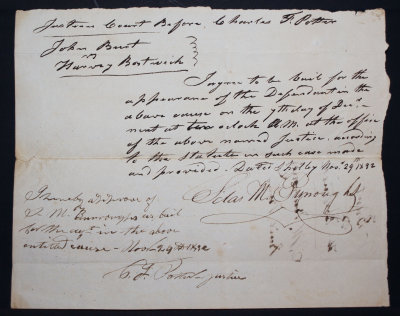 Justices Court Before, Charles F. Potter
John Burt
vs
Harvey Bostwick
I agree to be bail for the
appearance of the Defendant in the
above cause on the 9th day of Dec.
next at two oclock P.M. at the office
of the above named Justice, according
to the Statute in such case made
and provided. Dated Shelby Nov. 29th 1832
Silas M. Burroughs
I hereby approve of
S. M. Burroughs as bail
for the in the above
entitled cause - Nov. 29th 1832
C. F. Potter Justice